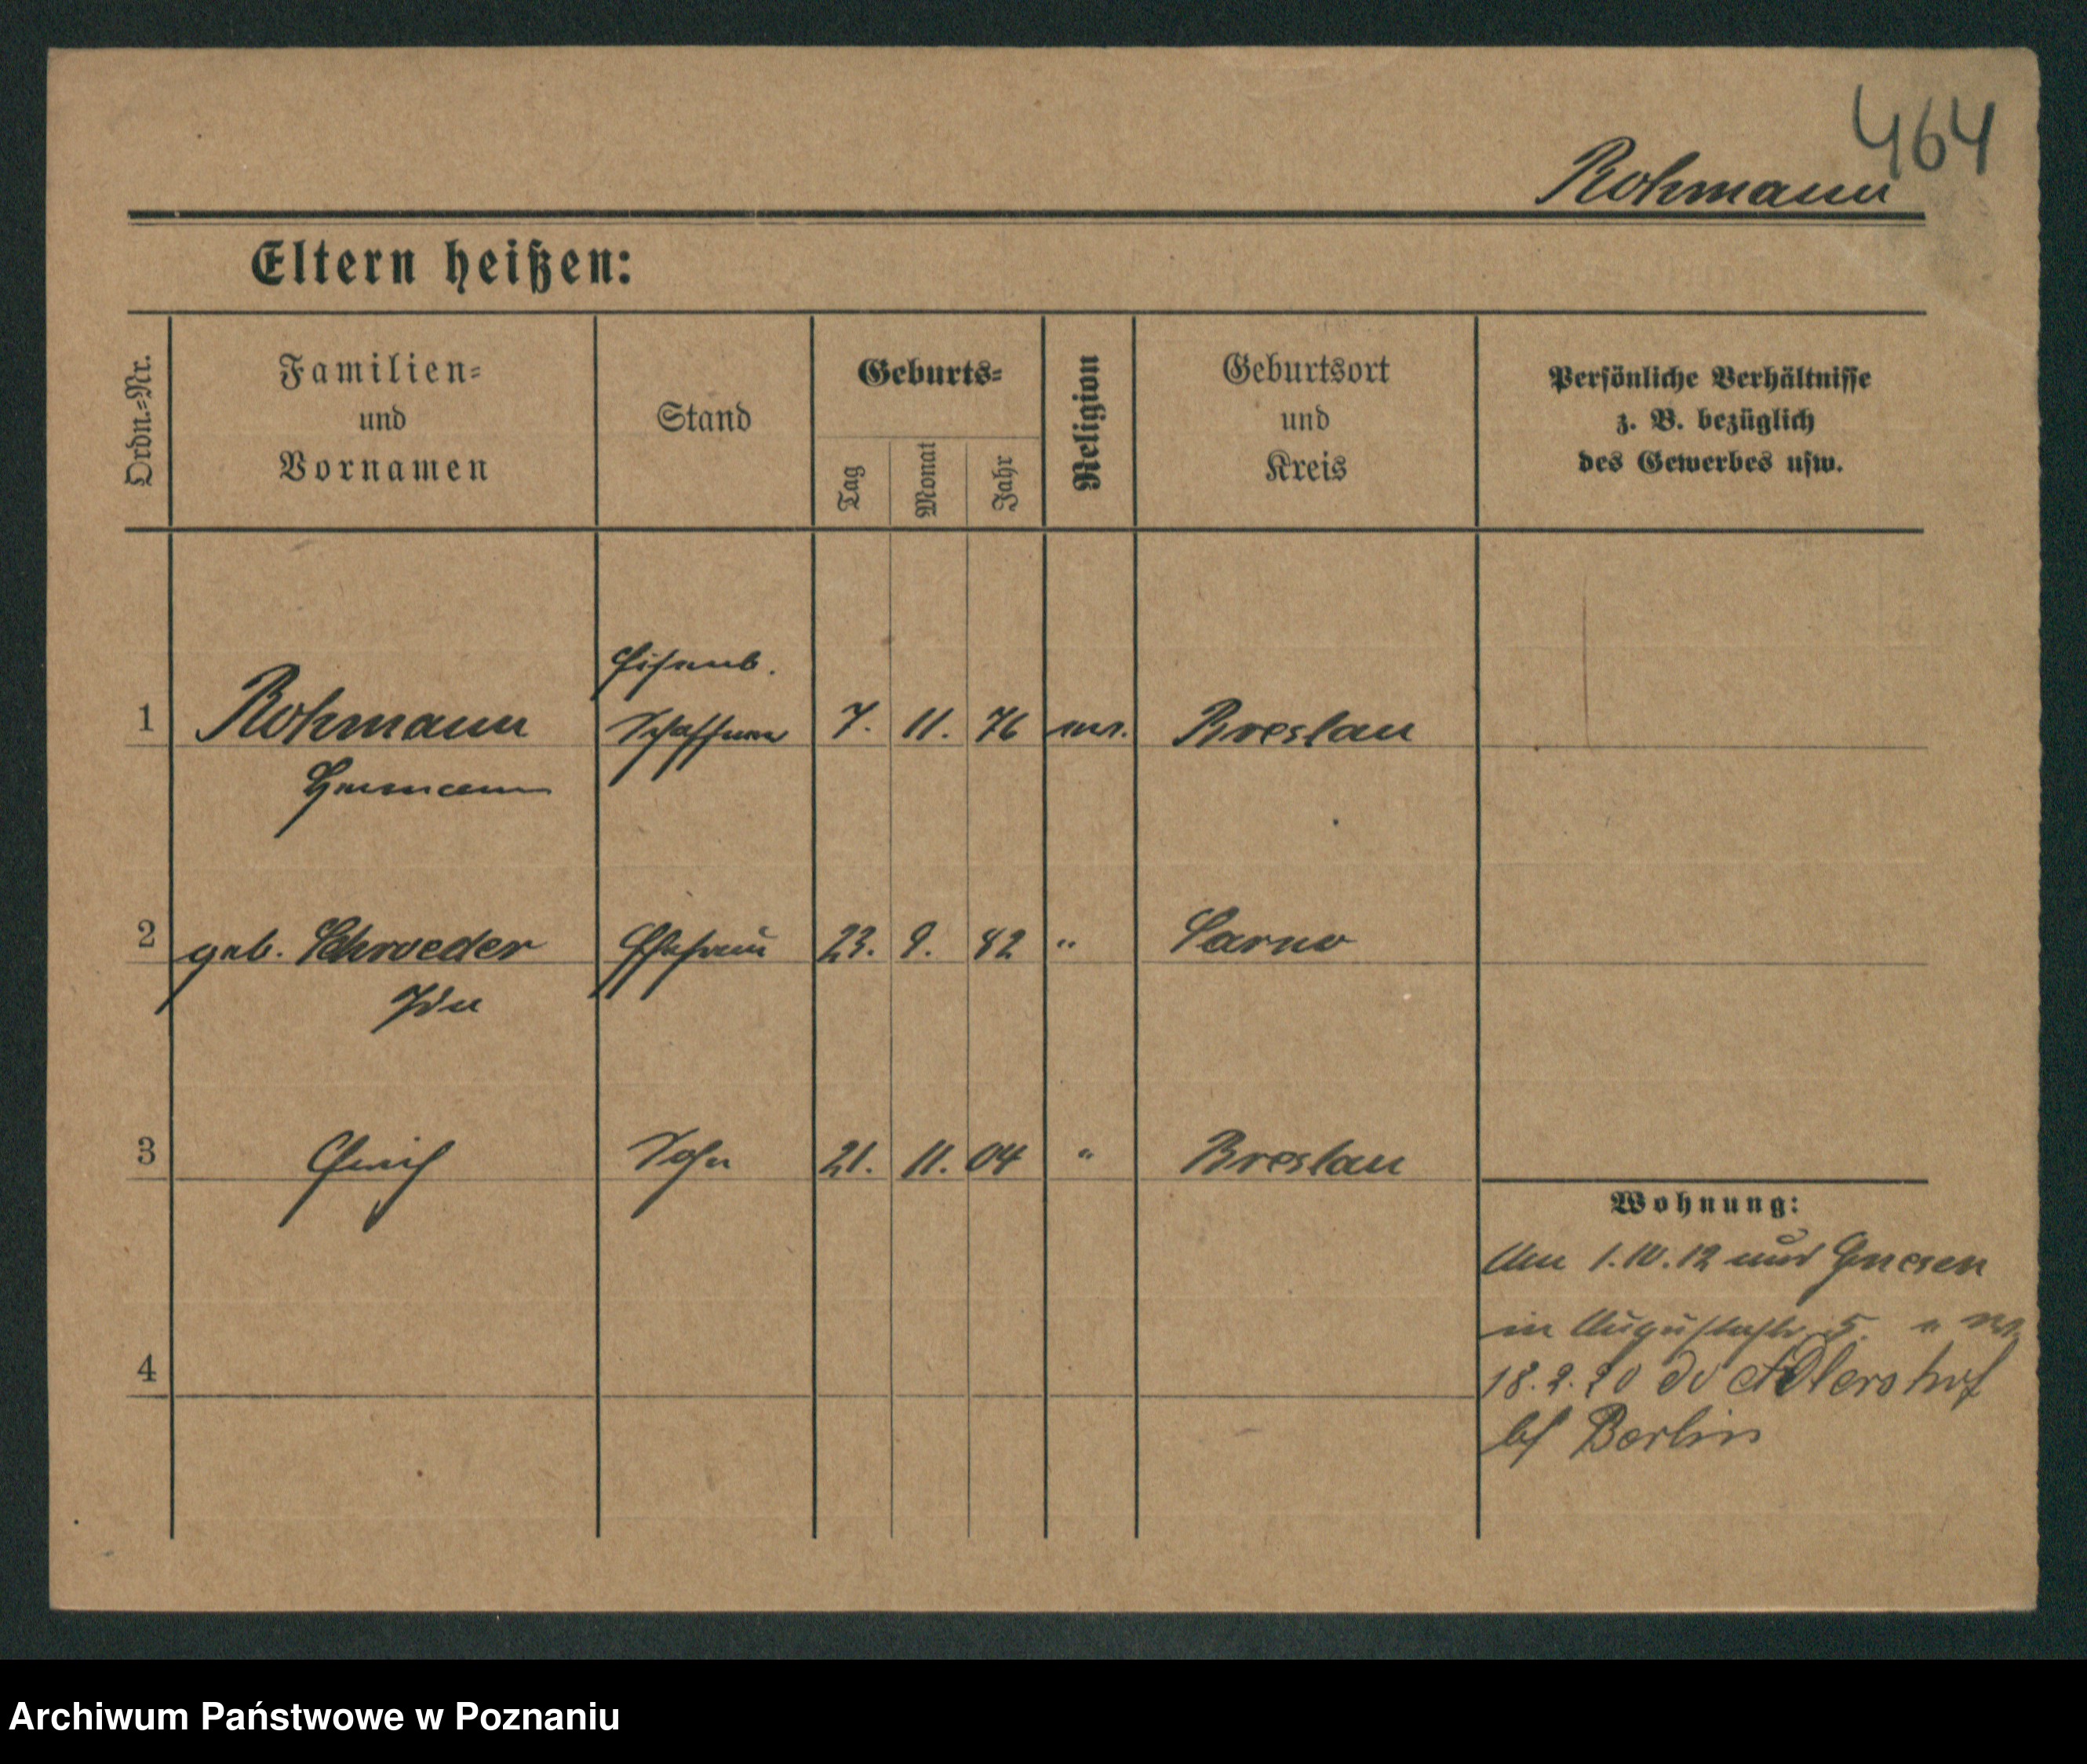 464
Rohmann
Eltern heißen:
Ordn.=Nr.
Familien=
und
Vornamen
Stand
Geburts=
Tag
Monat
Jahr
Religion
Geburtsort
und
Kreis
Persönliche Verhältnisse
z. B. bezüglich
des Gewerbes usw.
Eisenb.
1 Rohmann Schaffner 7. 11. 76 ev. Breslau
Hermann
2 geb. Schroeder Ehefrau 23. 9. 82 " Sarne
Ida
3 Erich Sohn 21. 11. 04 " Breslau
Wohnung:
Am 1.10.12 aus Gnesen
in Augustastr. 5. "
4
18.2.20 Adlershof
bf Berlin
Archiwum Państwowe w Poznaniu